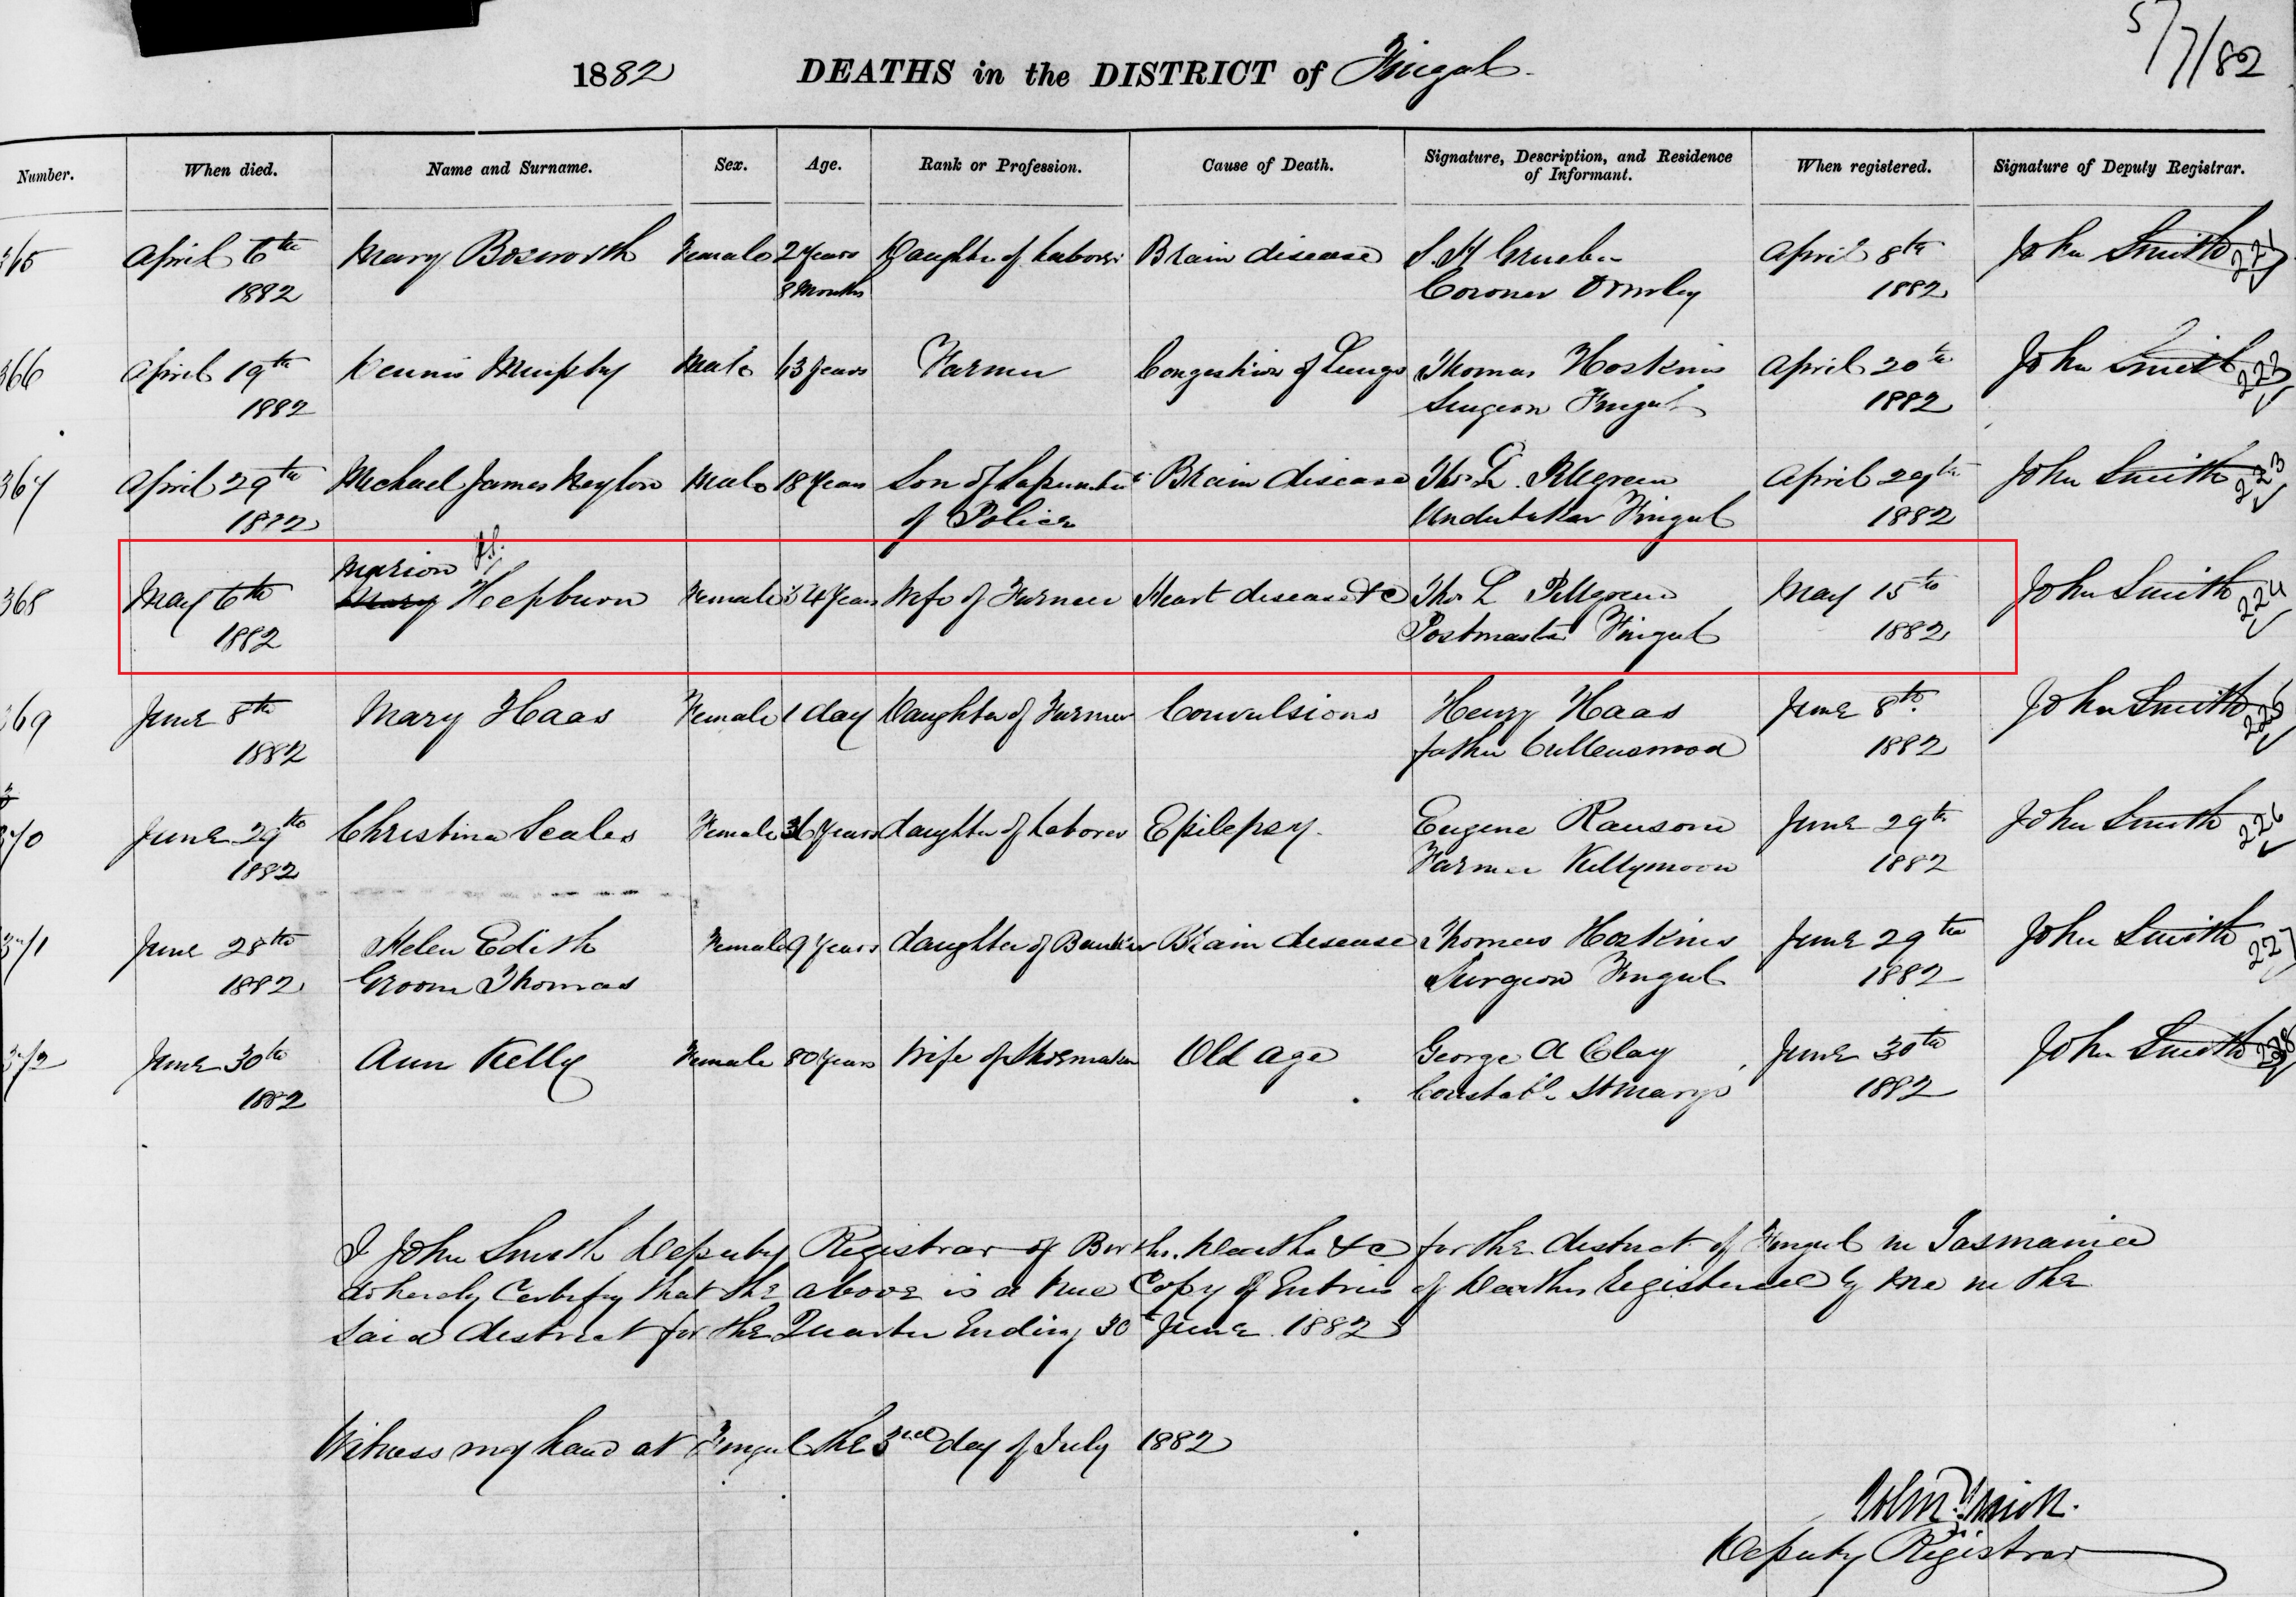 5/7/82
1882 DEATHS in the DISTRICT of Fingal
Number. When died. Name and Surname. Sex. Age. Rank or Profession. Cause of Death. Signature, Description, and Residence of Informant. When registered. Signature of Deputy Registrar.
365 April 6th Mary Bosworth Female 2 Years Daughter of Laborer Brain disease April 8th John Smith 221
1882 8 Months Coroner 1882
366 April 19th Dennis Murphy Male Years Farmer Congestion of Lungs Thomas Hoskins April 20th John Smith 222
1882 Surgeon Fingal 1882
367 April 29th Michael James Male 18 Years Son of Brain disease Thos L. Pillgrem April 29th John Smith 223
1882 of Police Undertaker Fingal 1882
Marion
368 May 6th Mary Hepburn Female 34 Years Wife of Farmer Heart disease &c Thos L Pillgrem May 15th John Smith 224
1882 Postmaster Fingal 1882
369 June 8th Mary Haas Female 1 day Daughter of Farmer Convulsions Henry Haas June 8th John Smith 225
1882 father Cullenswood 1882
370 June 29th Christina Scales Female 36 Years daughter of Laborer Epilepsy. Eugene Ransom June 29th John Smith 226
1882 Farmer Killymoon 1882
371 June 28th Helen Edith Female 9 Years daughter of Brain disease Thomas Hoskins June 29th John Smith 227
1882 Groom Thomas Surgeon Fingal 1882
372 June 30th Ann Kelly Female 80 Years Wife of Shoemaker Old age George A Clay June 30th John Smith 228
1882 Constable St Marys 1882
I John Smith Deputy Registrar of Births Deaths &c for the district of Fingal in Tasmania
do hereby Certify that the above is a true Copy of Entries of Deaths Registered by me in the
said district for the Quarter Ending 30 June 1882
Witness my hand at Fingal the 3rd day of July 1882
John Smith.
Deputy Registrar